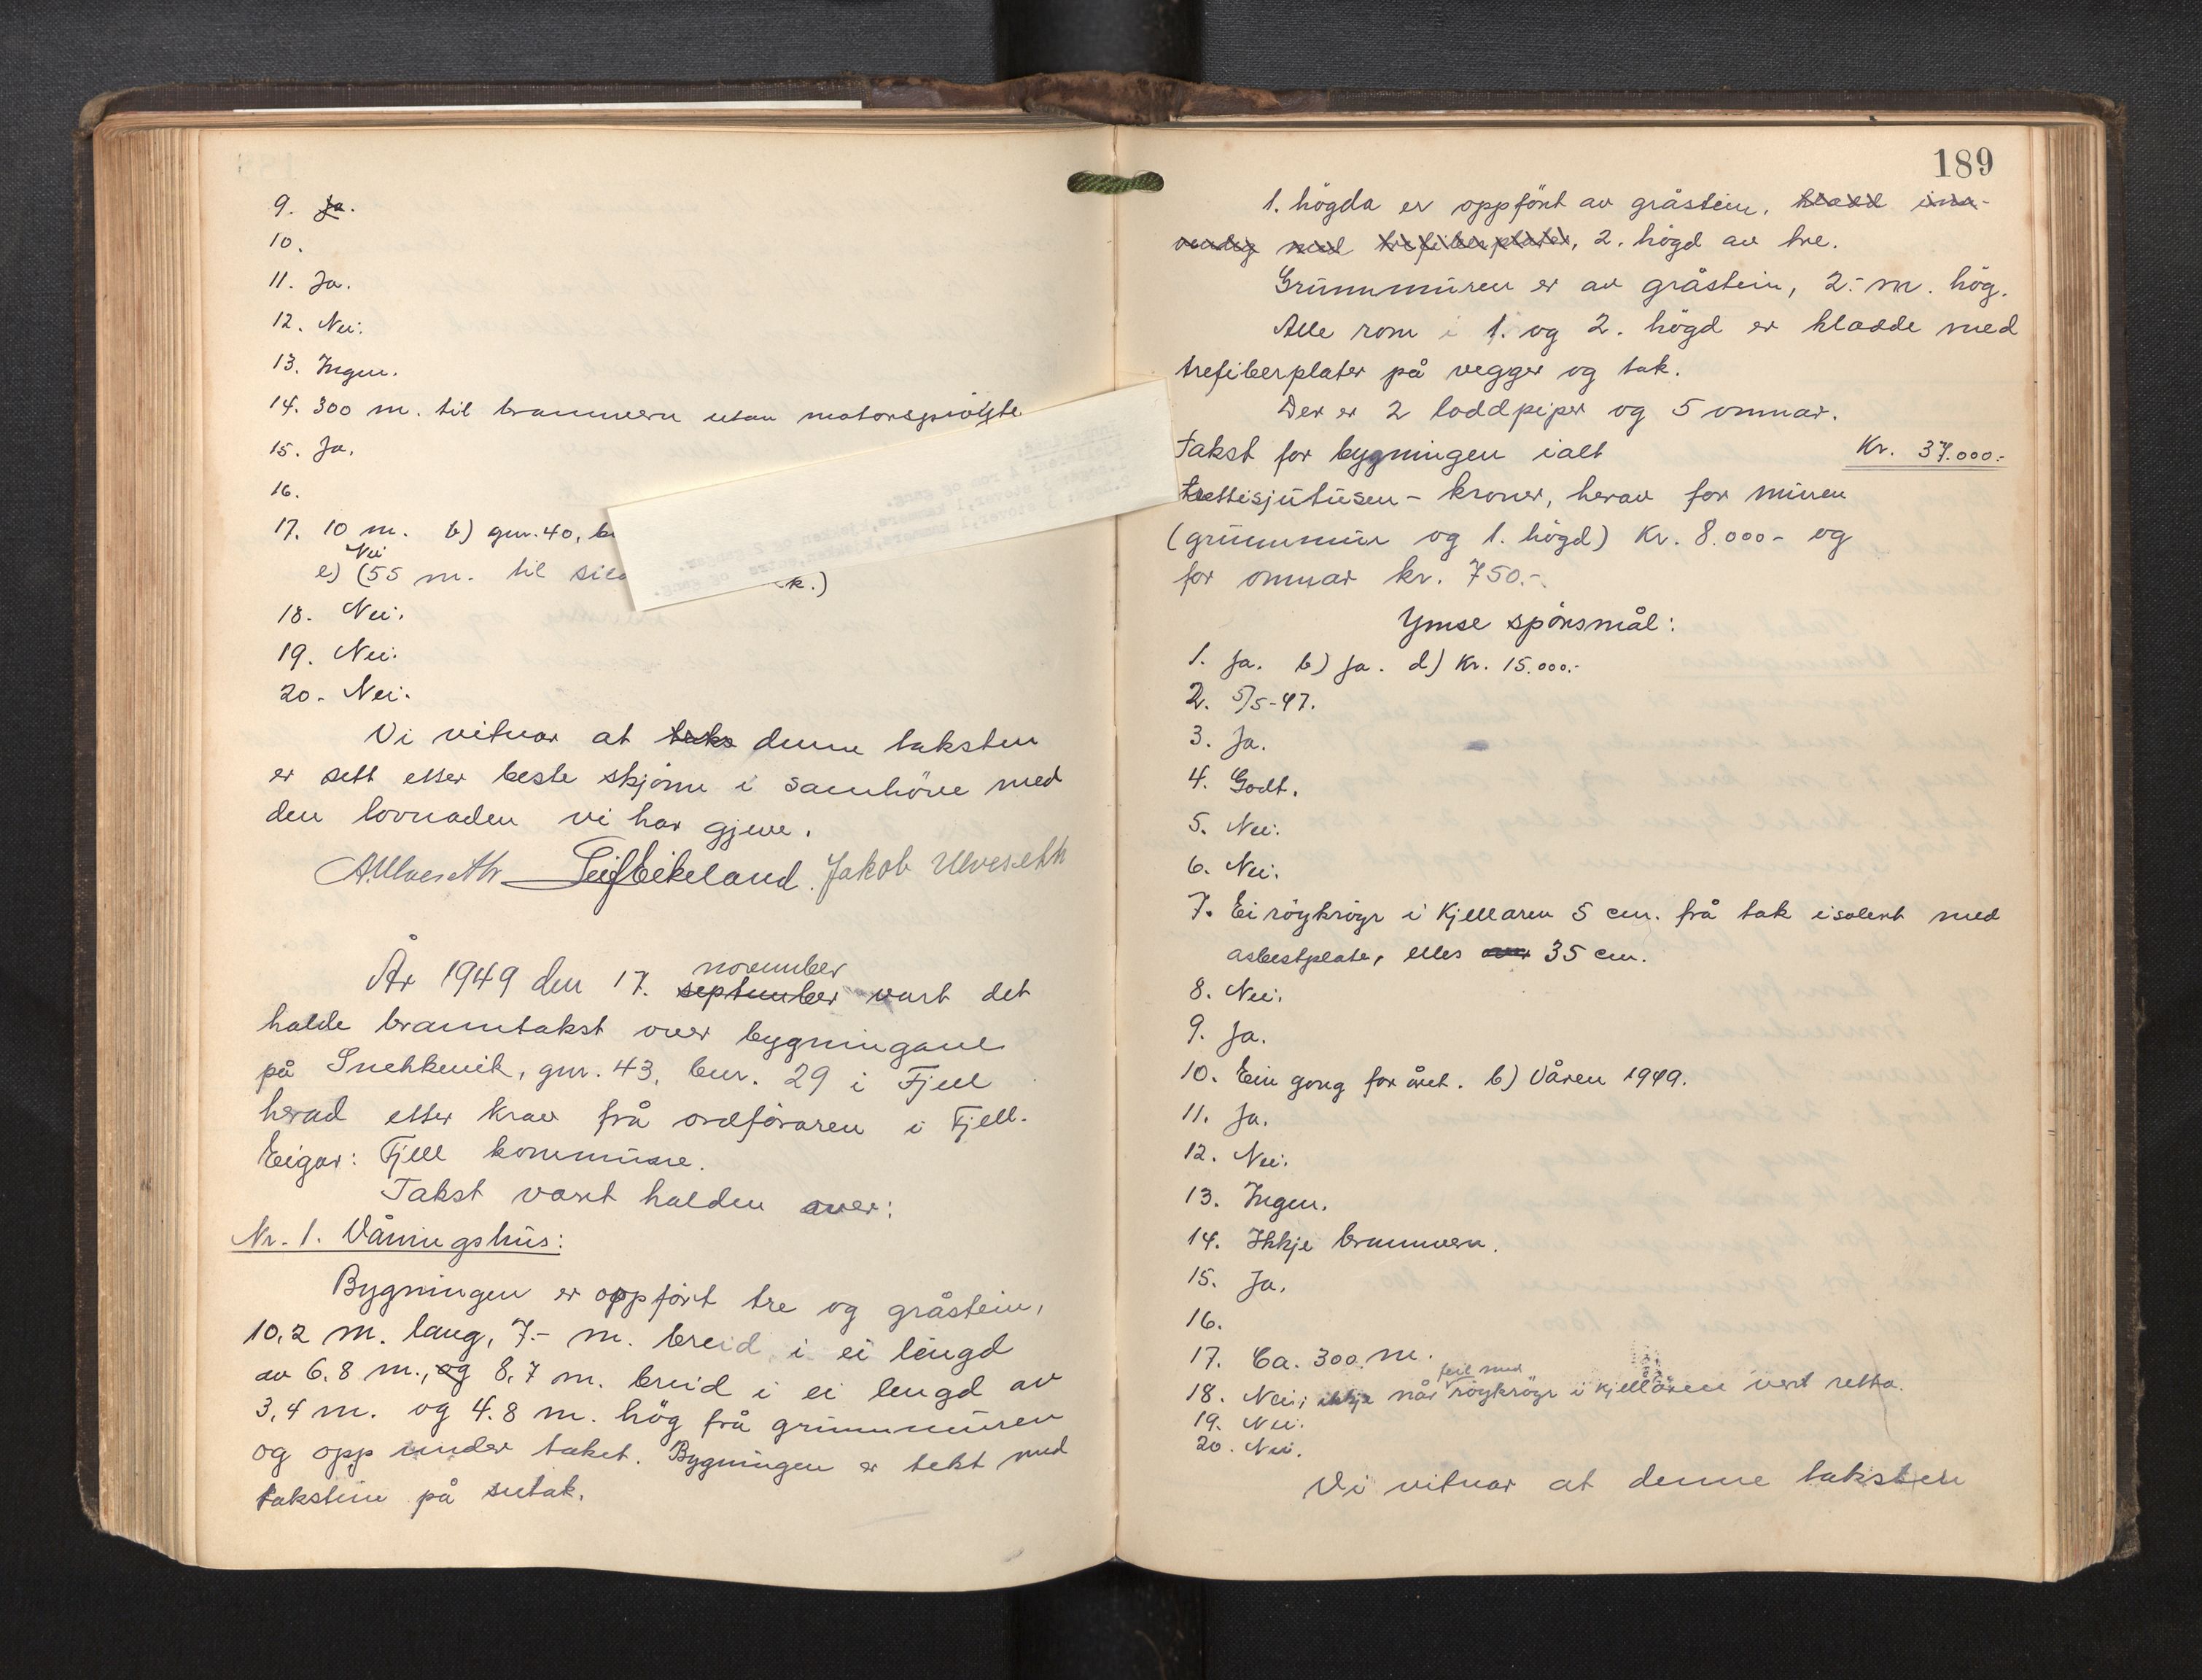 9. Ja.
10.
11. Ja.
12. Nei.
13. Ingen.
14. 300 m. til brannvern utan motorsprøyte
15. Ja.
16.
17. 10 m. b) gnr. 40, b
Nei
e) (55 m. til sild k.)
18. Nei.
19. Nei.
20. Nei.
Vi vitnar at taks denne taksten
er sett etter beste skjønn i samhöve med
den lovnaden vi har gjeve.
A. Ulveseth Leif Eikeland. Jakob Ulveseth
november
År 1949 den 17. september vart det
halde branntakst over bygningane
på Snekkevik, gnr. 43, bnr. 29 i Fjell
herad etter krav frå ordföraren i Fjell.
Eigar: Fjell kommune.
Takst vart halden over:
Nr. 1. Våningshus:
Bygningen er oppfört tre og gråstein,
10,2 m. lang, 7.- m. breid i ei lengd
av 6.8 m., og 8,7 m. breid i ei lengd av
3,4 m. og 4.8 m. hög frå grunnmuren
og opp under taket. Bygningen er tekt med
takstein på sutak.
189
1. högda er oppfört av gråstein, kledd inn-
vendig med trefiberplater, 2. högd av tre.
Grunnmuren er av gråstein, 2.- m. hög.
Alle rom i 1. og 2. högd er kledde med
trefiberplater på vegger og tak.
Der er 2 loddpiper og 5 omnar.
Takst for bygningen ialt Kr. 37.000.-
trettisjutusen - kroner, herav for muren
(grunnmur og 1. högd) Kr. 8.000- og
for omnar kr. 750.-
Ymse spörsmål:
1. Ja. b) Ja. d) Kr. 15.000.-
2. 5/5-47.
3. Ja.
4. Godt.
5. Nei.
6. Nei.
7. Ei röykröyr i Kjellaren 5 cm. frå tak isolert med
asbestplate, elles over 35 cm.
8. Nei.
9. Ja.
10. Ein gong for året. b) Våren 1949.
11. Ja.
12. Nei.
13. Ingen.
14. Ikkje brannvern.
15. Ja.
16.
17. Ca. 300 m.
feil med
18. Nei, ikkje når röykröyr i kjellaren vert retta.
19. Nei.
20. Nei.
Vi vitnar at denne taksten